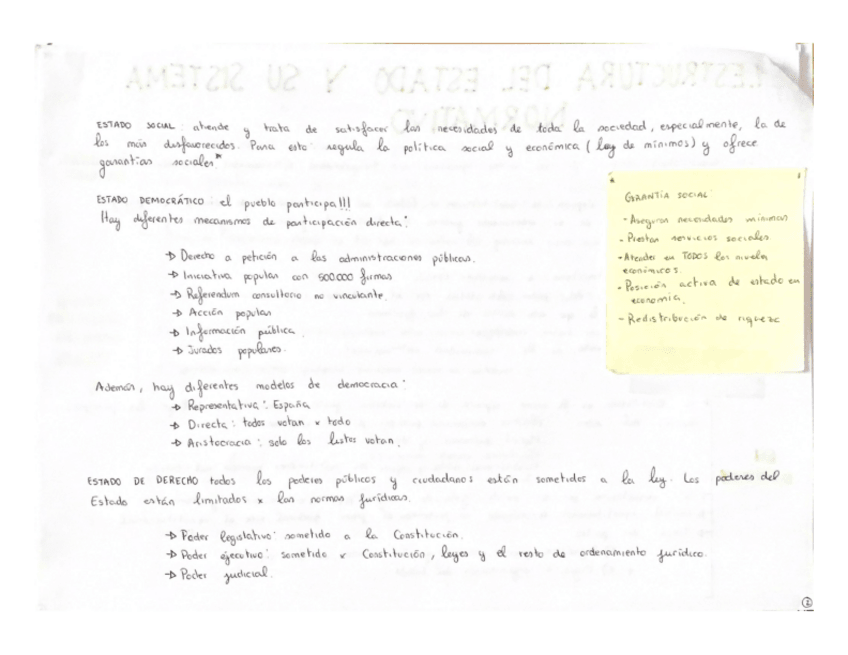 1. ESTRUCTURA DEL ESTADO Y SU SISTEMA
NORMATIVO
ESTADO SOCIAL: atiende y trata de satisfacer las necesidades de toda la sociedad, especialmente, la de
los más disfavorecidos. Para esto regula la política social y económica (ley de mínimos) y ofrece
garantías sociales*
ESTADO DEMOCRÁTICO: el pueblo participa!!!
Hay diferentes mecanismos de participación directa:
→ Derecho a petición a las administraciones públicas.
→ Iniciativa popular con 500.000 firmas
→ Referendum consultorio no vinculante.
→ Acción popular
→ Información pública.
→ Jurados populares.
GRANTÍA SOCIAL:
- Aseguran necesidades mínimas
- Prestan servicios sociales
- Atender en TODOS los niveles
económicos.
- Posición activa de estado en
economía.
- Redistribución de riqueza
Además, hay diferentes modelos de democracia:
→ Representativa: España
→ Directa: todos votan x todo
→ Aristocracia: solo los listos votan.
ESTADO DE DERECHO todos los poderes públicos y ciudadanos están sometidos a la ley. Los poderes del
Estado están limitados x las normas jurídicas.
→ Poder legislativo: sometido a la Constitución.
→ Poder ejecutivo: sometido x Constitución, leyes y el resto de ordenamiento jurídico.
→ Poder judicial.
2